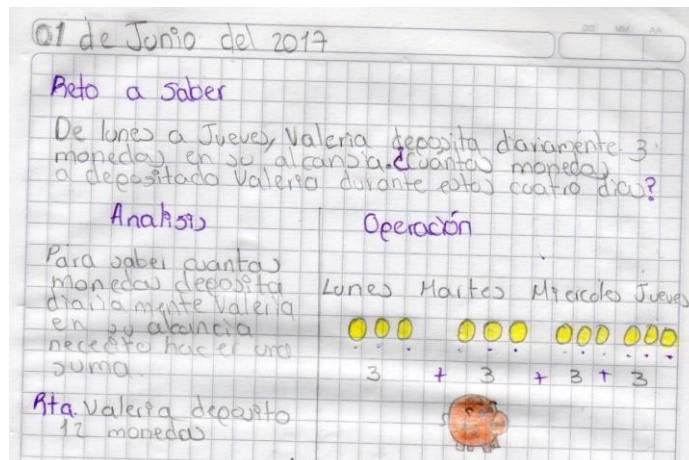 01 de Junio del 2017
DD MM AA
Reto a saber
De lunes a Jueves, Valeria deposita diariamente 3
monedas en su alcansia.¿Cuantas monedas
a depositado Valeria durante estos cuatro dias?
Analisis
Para saber cuantas
monedas deposita
diariamente Valeria
en su alcancia
necesito hacer una
suma.
Rta. Valeria deposito
12 monedas
Operación
Lunes Martes Miercoles Jueves
3 + 3 + 3 + 3